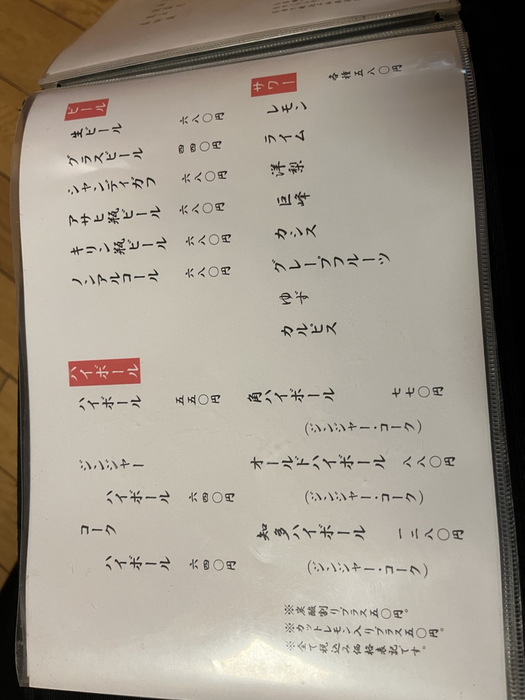 ビール
生ビール 六八〇円
グラスビール 四四〇円
シャンディガフ 六八〇円
アサヒ瓶ビール 六八〇円
キリン瓶ビール 六八〇円
ノンアルコール 六八〇円
ハイボール
ハイボール 五五〇円
ジンジャー
ハイボール 六四〇円
コーク
ハイボール 六四〇円
サワー
各種五八〇円
レモン
ライム
洋梨
巨峰
カシス
グレープフルーツ
ゆず
カルピス
角ハイボール 七七〇円
(ジンジャー・コーク)
オールドハイボール 八八〇円
(ジンジャー・コーク)
知多ハイボール 一二八〇円
(ジンジャー・コーク)
※炭酸割りプラス五〇円。
※カットレモン入りプラス五〇円。
※全て税込み価格表記です。